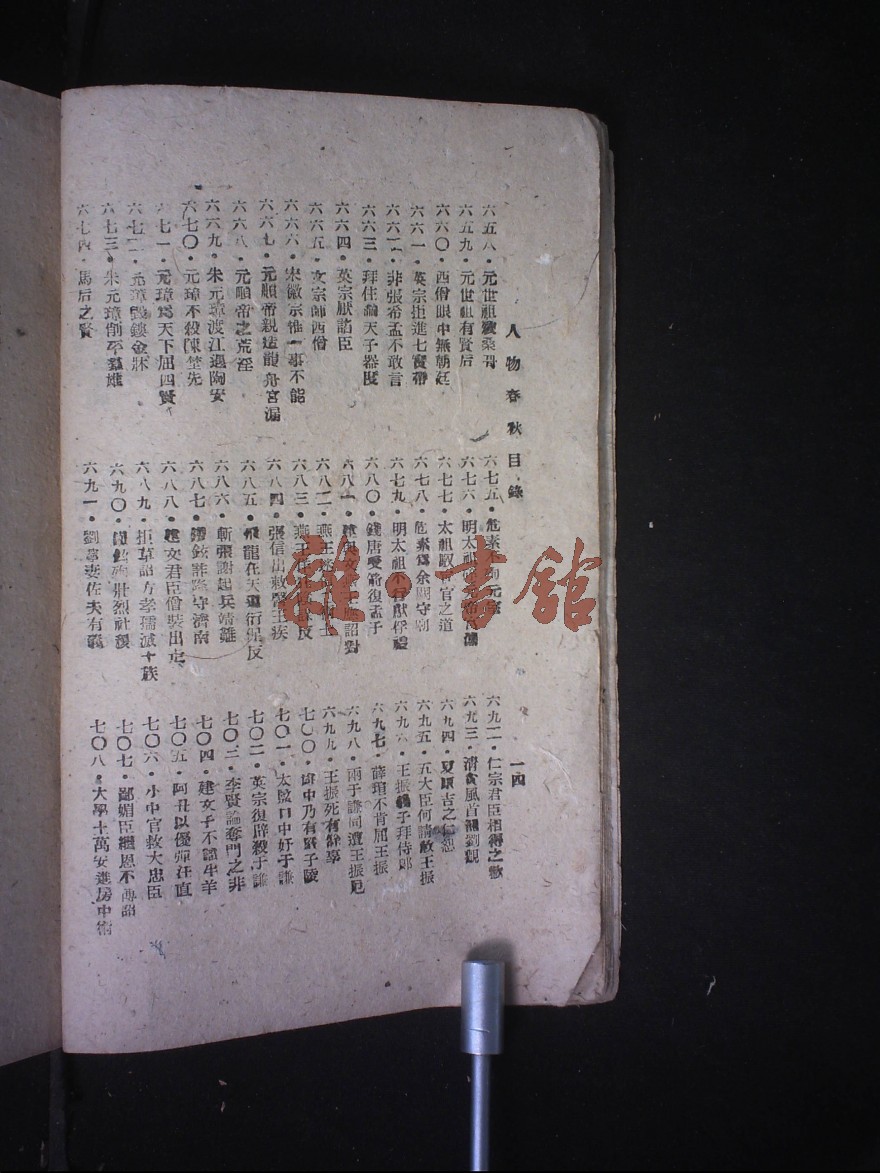 人物春秋目錄
一四
六五八・元世祖殺桑哥
六五九・元世祖有賢后
六六〇・西僧眼中無朝廷
六六一・英宗拒進七寶帶
六六二・非張希孟不敢言
六六三・拜住論天子器度
六六四・英宗厭諂臣
六六五・文宗師西僧
六六六・宋徽宗惟一事不能
六六七・元順帝親造龍舟宮漏
六六八・元順帝之荒淫
六六九・朱元璋渡江遇陶安
六七〇・元璋不殺陳埜先
六七一・元璋爲天下屈四賢
六七二・元璋毀鏤金牀
六七三・朱元璋削平羣雄
六七四・馬后之賢
六七五・危素不
六七六・明太祖
六七七・太祖馭宦官之道
六七八・危素爲余闕守廟
六七九・明太祖不行獻俘禮
六八〇・錢唐受箭復孟子
六八一・詔對
六八二・燕王
六八三・燕王反
六八四・張信出敕醫王疾
六八五・飛龍在天道衍促反
六八六・斬張謝起兵靖難
六八七・鐵鉉詐降守濟南
六八八・建文君臣僧裝出走
六八九・拒草詔方孝孺滅十族
六九〇・壯烈社稷
六九一・劉妻佐夫有義
六九二・仁宗君臣相得之歡
六九三・清貪風首劉觀
六九四・夏原吉之
六九五・五大臣何請赦王振
六九六・王振子拜侍郎
六九七・薛瑄不肯屈王振
六九八・兩于謙同遭王振厄
六九九・王振死有餘辜
七〇〇・虜中乃有子陵
七〇一・太監口中奸于謙
七〇二・英宗復辟殺于謙
七〇三・李賢論奪門之非
七〇四・建文子不識牛羊
七〇五・阿丑以優彈汪直
七〇六・小中官救大忠臣
七〇七・鄙媚臣繼恩不再詔
七〇八・大學士萬安進房中術
雜・書館